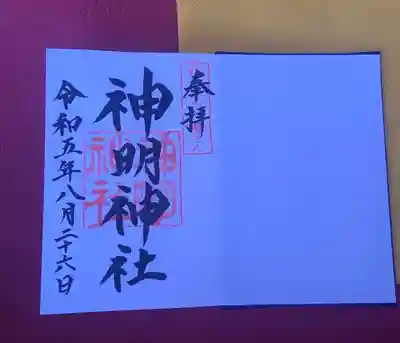 奉拝
神明神社
令和五年八月二十六日